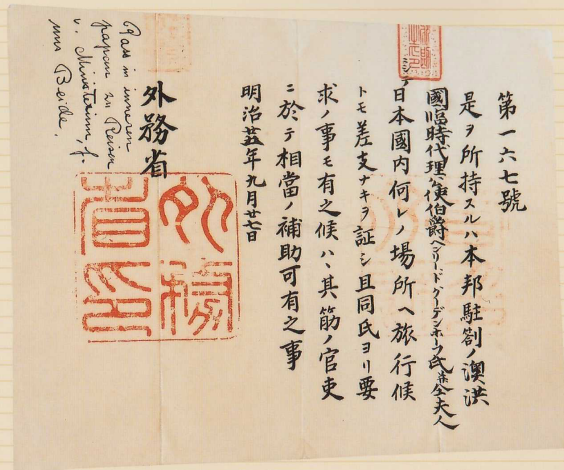 第一六七號
是ヲ所持スルハ本邦駐劄ノ澳洪
國臨時代理公使伯爵ヘンリードクーデンホーフ氏並仝夫人
ニシテ日本國内何レノ場所ヘ旅行候
トモ差支ナキヲ証シ且同氏ヨリ要
求ノ事モ有之候ハヽ其筋ノ官吏
ニ於テ相當ノ補助可有之事
明治廿五年九月廿七日
外務省
外務省印
Pass in inneren
Japan zu Reisen
v. Ministerium, f.
uns Beide.